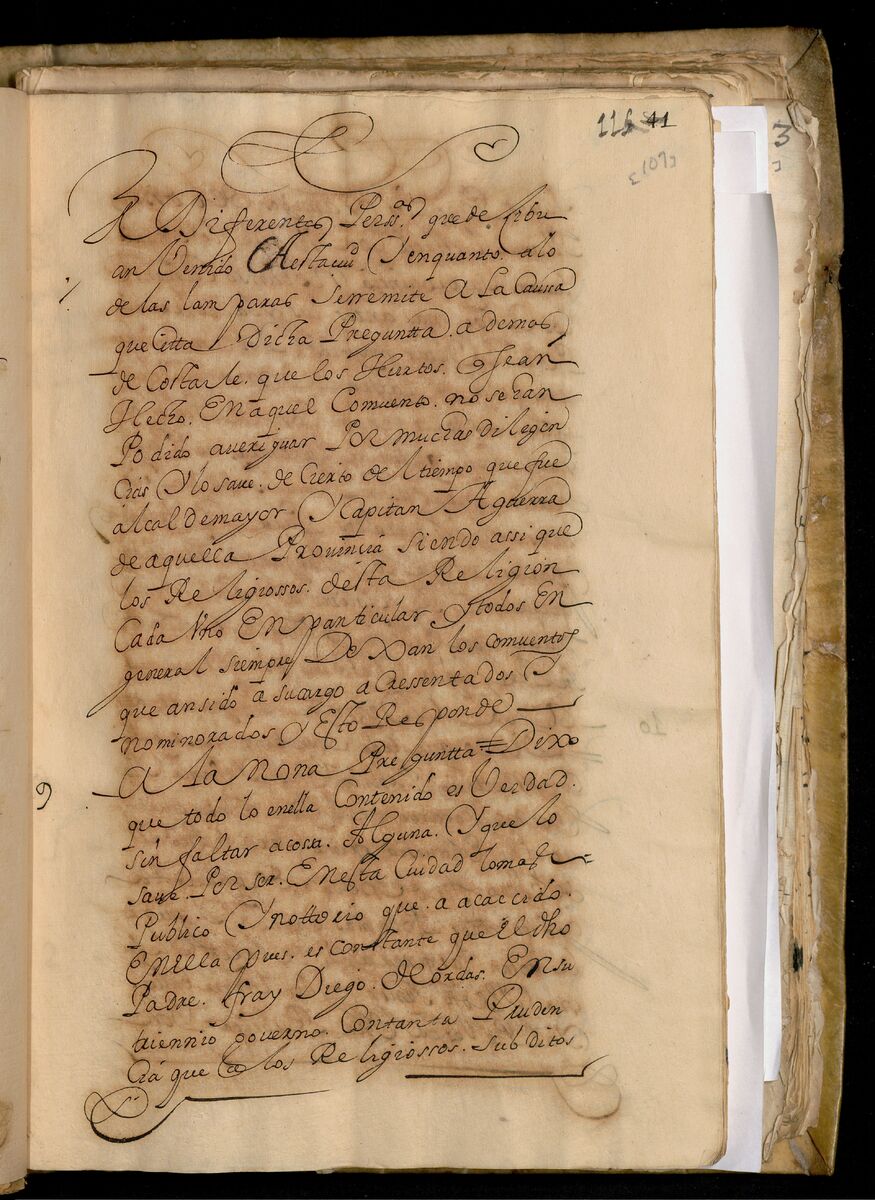 116 41
A Diferentes Perss.as que de Cibu
an Venido Aesta ciud Y enquanto. alo
de las lamparas serremite A La Caussa
que Citta Dicha Preguntta. a demas
de Costarle. que los Hurtos. q Sean
Hecho. En aquel Comuento. no se han
Podido aueriguar Por muchas dilixen
cias Y lo saue. de Cierto del tiempo que fue
alcalde mayor Y Capitan Aguerra
de aquella Prouincia siendo assi que
los Religiossos. desta Religion
Cada Vno En particular Y todos En
general siempre Dexan los comuentos
que an sido a su cargo a Cressentados Y
no minorados Y Esto Responde
9
A la Nona Preguntta = Dixo
que todo lo enella Contenido es Verdad.
sin faltar acossa. Alguna. Y que lo
saue. Por ser. Enesta Ciudad lo mas
Publico Y nottorio que. a acaecido.
En Ella Pues. es constante que El dho
Padre. fray Diego. de ordas. En su
triennio gouerno. Con tanta Pruden
cia que a los Religiossos. subditos